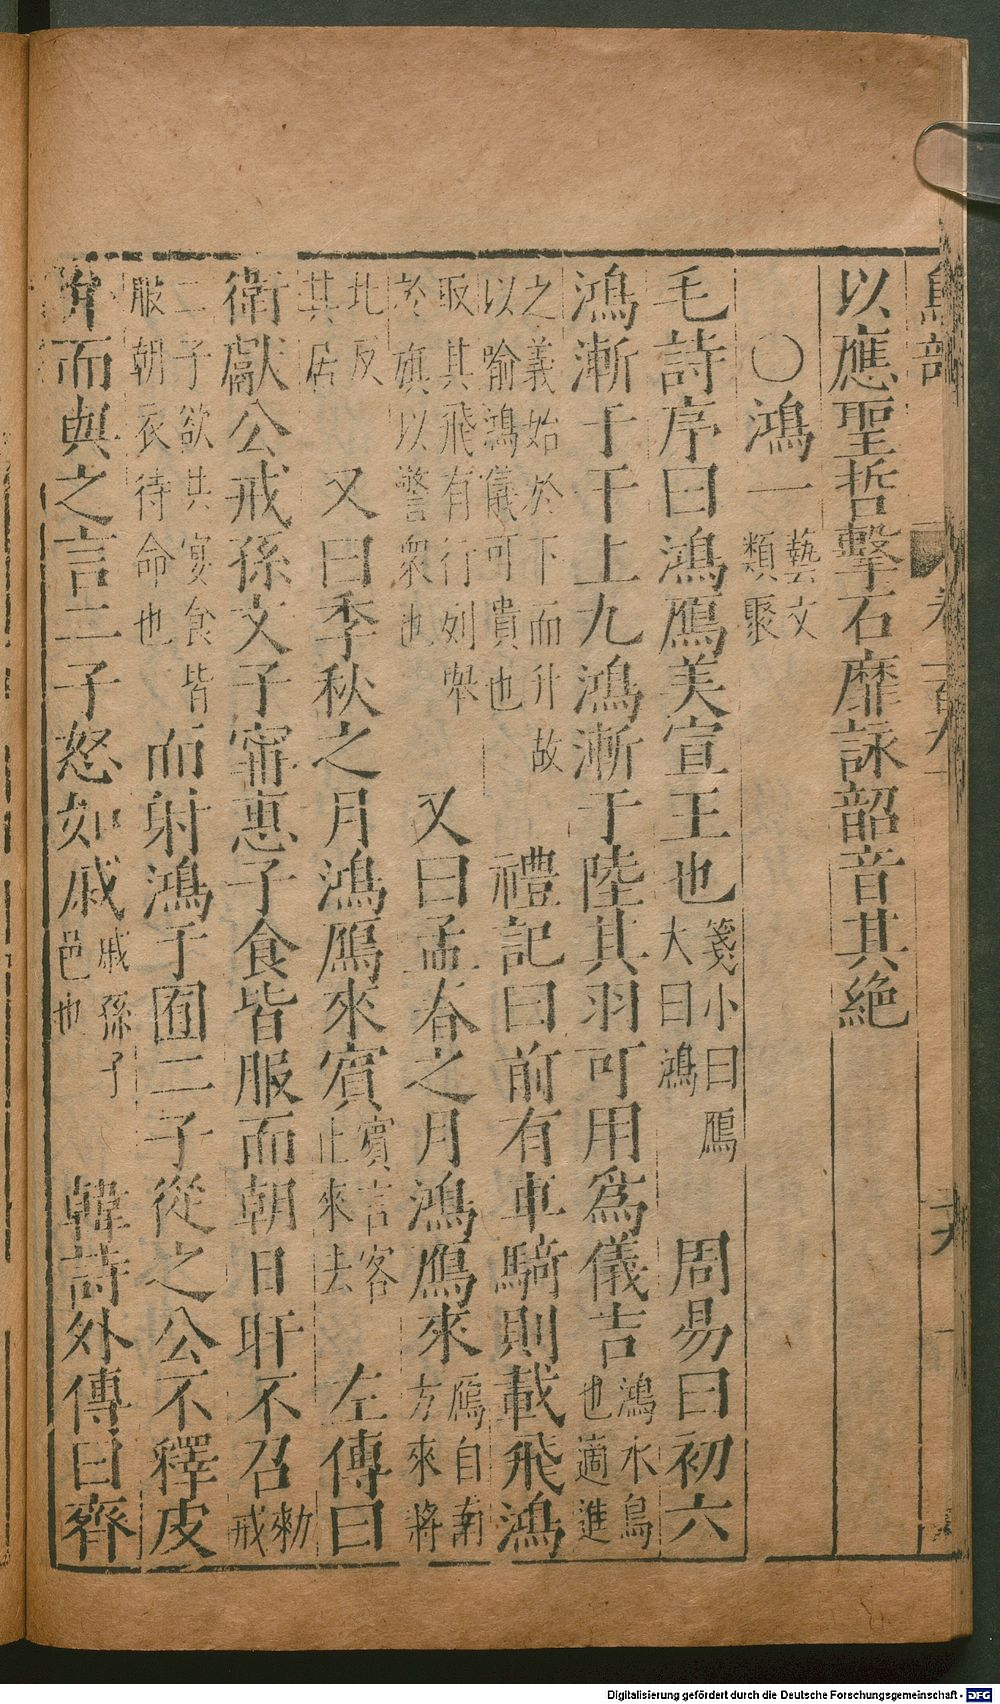 鳥部
以應聖哲擊石靡詠韶音其絶
○鴻一藝文類聚
毛詩序曰鴻鴈美宣王也箋小曰鴈大曰鴻 周易曰初六
鴻漸于干上九鴻漸于陸其羽可用爲儀吉鴻水鳥也適進
之義始於下而升故以喻鴻儀可貴也 禮記曰前有車騎則載飛鴻
取其飛有行列舉於旗以警衆也 又曰孟春之月鴻鴈來鴈自南方來將
北反其居 又曰季秋之月鴻鴈來賓賓言客止來去 左傳曰
衛獻公戒孫文子甯惠子食皆服而朝日旰不召勑戒
二子欲共宴食皆服朝衣待命也 而射鴻于囿二子從之公不釋皮
而與之言二子怒如戚戚孫子邑也 韓詩外傳曰齊
Digitalisierung gefördert durch die Deutsche Forschungsgemeinschaft - DFG